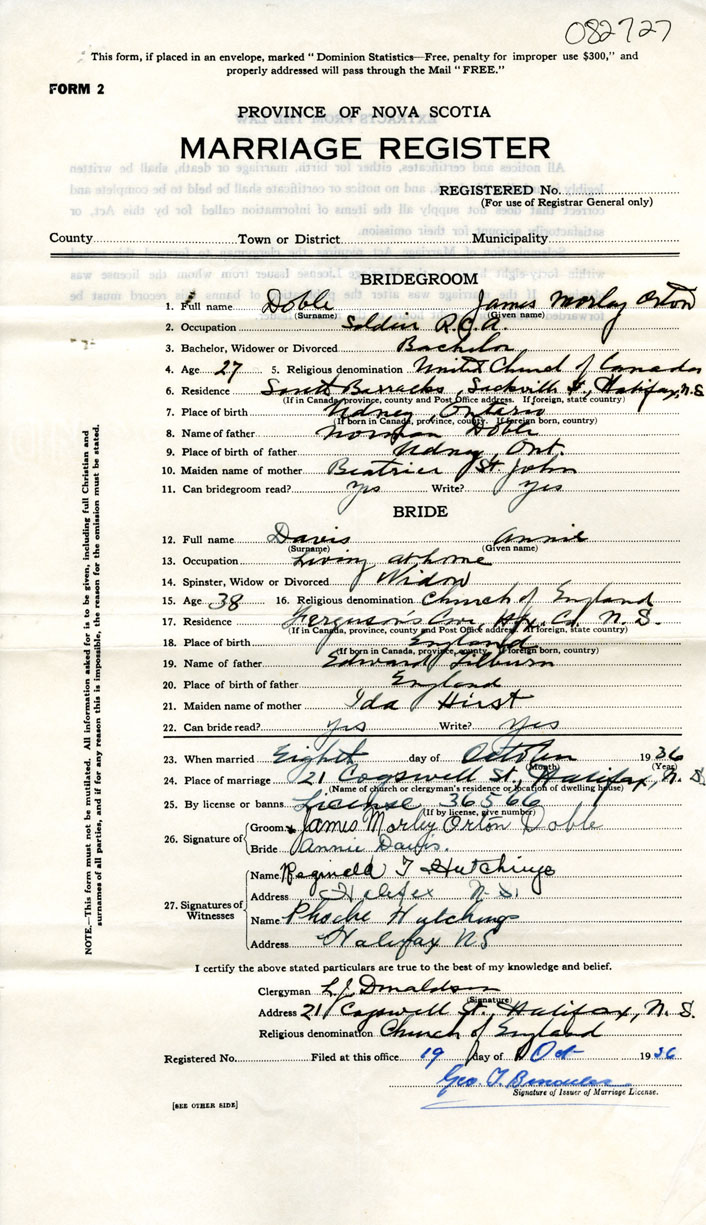 082727
This form, if placed in an envelope, marked "Dominion Statistics—Free, penalty for improper use $300," and
properly addressed will pass through the Mail "FREE."
FORM 2
PROVINCE OF NOVA SCOTIA
MARRIAGE REGISTER
REGISTERED No.
(For use of Registrar General only)
County Town or District Municipality
BRIDEGROOM
1. Full name Doble James Morley Orton
(Surname) (Given name)
2. Occupation Soldier R.C.A.
3. Bachelor, Widower or Divorced Bachelor
4. Age 27 5. Religious denomination United Church of Canada
6. Residence South Barracks, Sackville St, Halifax, N.S
(If in Canada, province, county and Post Office address. If foreign, state country)
7. Place of birth Udney, Ontario
(If born in Canada, province, county. If foreign born, country)
8. Name of father Norman Doble
9. Place of birth of father Udney, Ont.
10. Maiden name of mother Beatrice St. John
11. Can bridegroom read? Yes Write? Yes
BRIDE
12. Full name Davis Annie
(Surname) (Given name)
13. Occupation Living at home
14. Spinster, Widow or Divorced Widow
15. Age 38 16. Religious denomination Church of England
17. Residence Ferguson's Cove, Hfx. Co. N.S.
(If in Canada, province, county and Post Office address. If foreign, state country)
18. Place of birth England
(If born in Canada, province, county. If foreign born, country)
19. Name of father Edward Lilburn
20. Place of birth of father England
21. Maiden name of mother Ida Hirst
22. Can bride read? Yes Write? Yes
23. When married Eight day of October 1936
(Month) (Year)
24. Place of marriage 21 Cogswell St., Halifax, N.S
(Name of church or clergyman's residence or location of dwelling house)
25. By license or banns License 36566
(If by license, give number)
26. Signature of
Groom James Morley Orton Doble
Bride Annie Davis.
27. Signatures of Witnesses
Name Reginald T Hutchings
Address Halifax N.S.
Name Phoebe Hutchings
Address Halifax NS
I certify the above stated particulars are true to the best of my knowledge and belief.
Clergyman L J Donaldson
(Signature)
Address 21 Cogswell St., Halifax, N.S.
Religious denomination Church of England
Registered No. Filed at this office 19 day of Oct 1936
Geo. T.
Signature of Issuer of Marriage License.
[SEE OTHER SIDE]
NOTE.—This form must not be mutilated. All information asked for is to be given, including full Christian and
surnames of all parties, and if for any reason this is impossible, the reason for the omission must be stated.